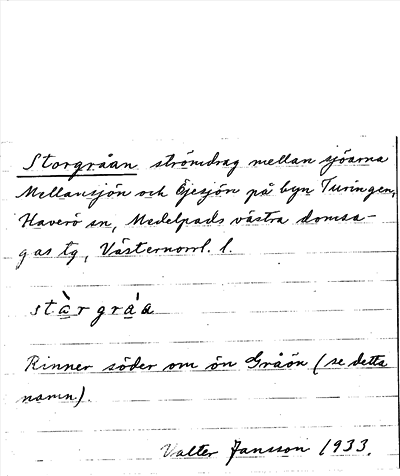 Storgråan strömdrag mellan sjöarna
Mellansjön och Öjesjön på byn Turingen,
Haverö sn, Medelpads västra domsa-
gas tg, Västernorrl. l.
stàr gràa
Rinner söder om ön Gråön (se detta
namn).
Valter Jansson 1933.